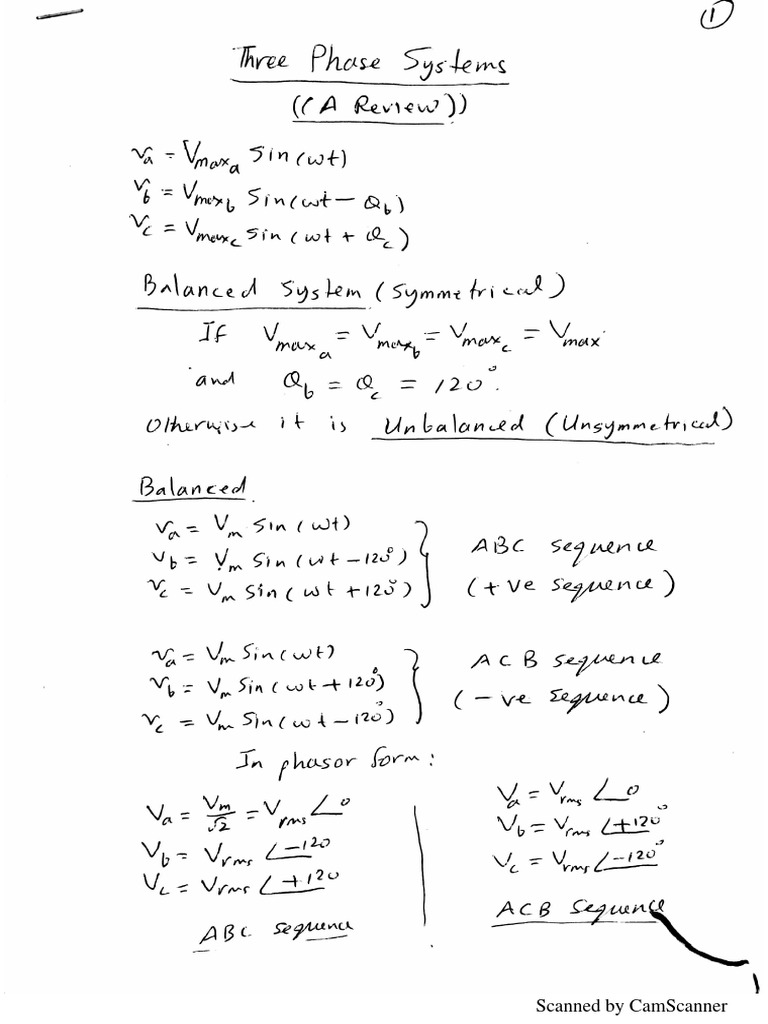 ①
Three Phase Systems
((A Review))
va = Vmaxa Sin(wt)
vb = Vmaxb Sin(wt - θb)
vc = Vmaxc Sin(wt + θc)
Balanced System (Symmetrical)
If Vmaxa = Vmaxb = Vmaxc = Vmax
and θb = θc = 120°.
Otherwise it is Unbalanced (Unsymmetrical)
Balanced.
va = Vm Sin(wt)
vb = Vm Sin(wt - 120°)
vc = Vm Sin(wt + 120°)
ABC sequence
(+ve sequence)
va = Vm Sin(wt)
vb = Vm Sin(wt + 120°)
vc = Vm Sin(wt - 120°)
ACB sequence
(-ve sequence)
In phasor form:
Va = Vm/√2 = Vrms ∠0
Vb = Vrms ∠-120
Vc = Vrms ∠+120
ABC sequence
Va = Vrms ∠0
Vb = Vrms ∠+120°
Vc = Vrms ∠-120°
ACB Sequence
Scanned by CamScanner